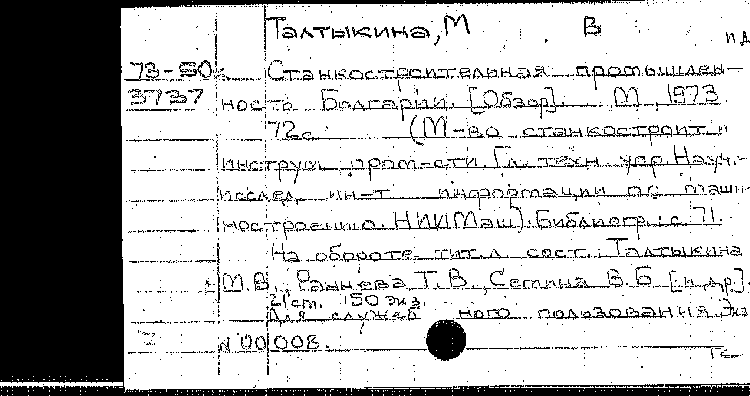 Талтыкина, М В
73-50 Станкостроительная промышлен-
3737 ность Болгарии. [Обзор]. М., 1973
72с. (М-во станкостроит. и
инструм. пром-сти. Гл. техн. упр. Науч.-
исслед. ин-т информации по маши-
ностроению. НИИМаш). Библиогр.: с. 71.
На обороте тит. л. сост.: Талтыкина
М.В., Т.В., Семина В.Б [и др.].
21 см. 150 экз.
Для служеб ного пользования. Экз
N 00008.